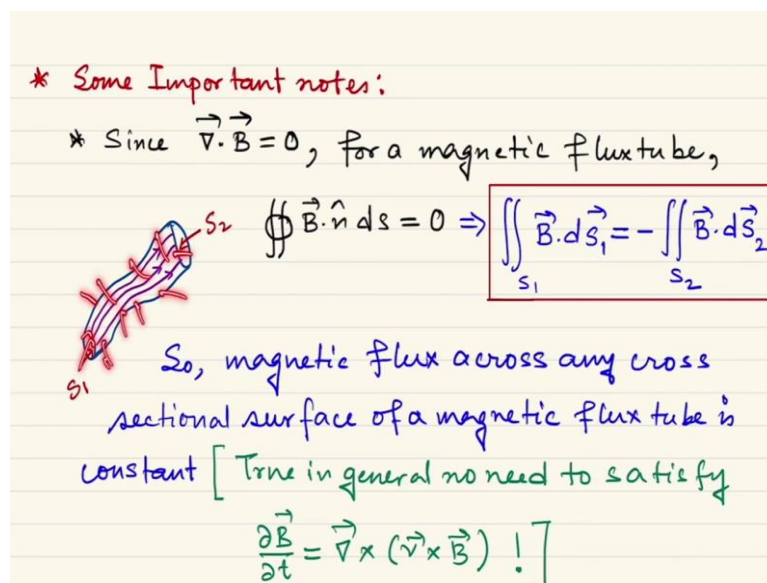 * Some Important notes:
* Since ∇⃗·B⃗ = 0, for a magnetic flux tube,
∯ B⃗·n̂ ds = 0 ⇒ ∬_S₁ B⃗·dS⃗₁ = -∬_S₂ B⃗·dS⃗₂
S₂
S₁
So, magnetic flux across any cross
sectional surface of a magnetic flux tube is
constant [True in general no need to satisfy
∂B⃗/∂t = ∇⃗ × (v⃗ × B⃗) !]